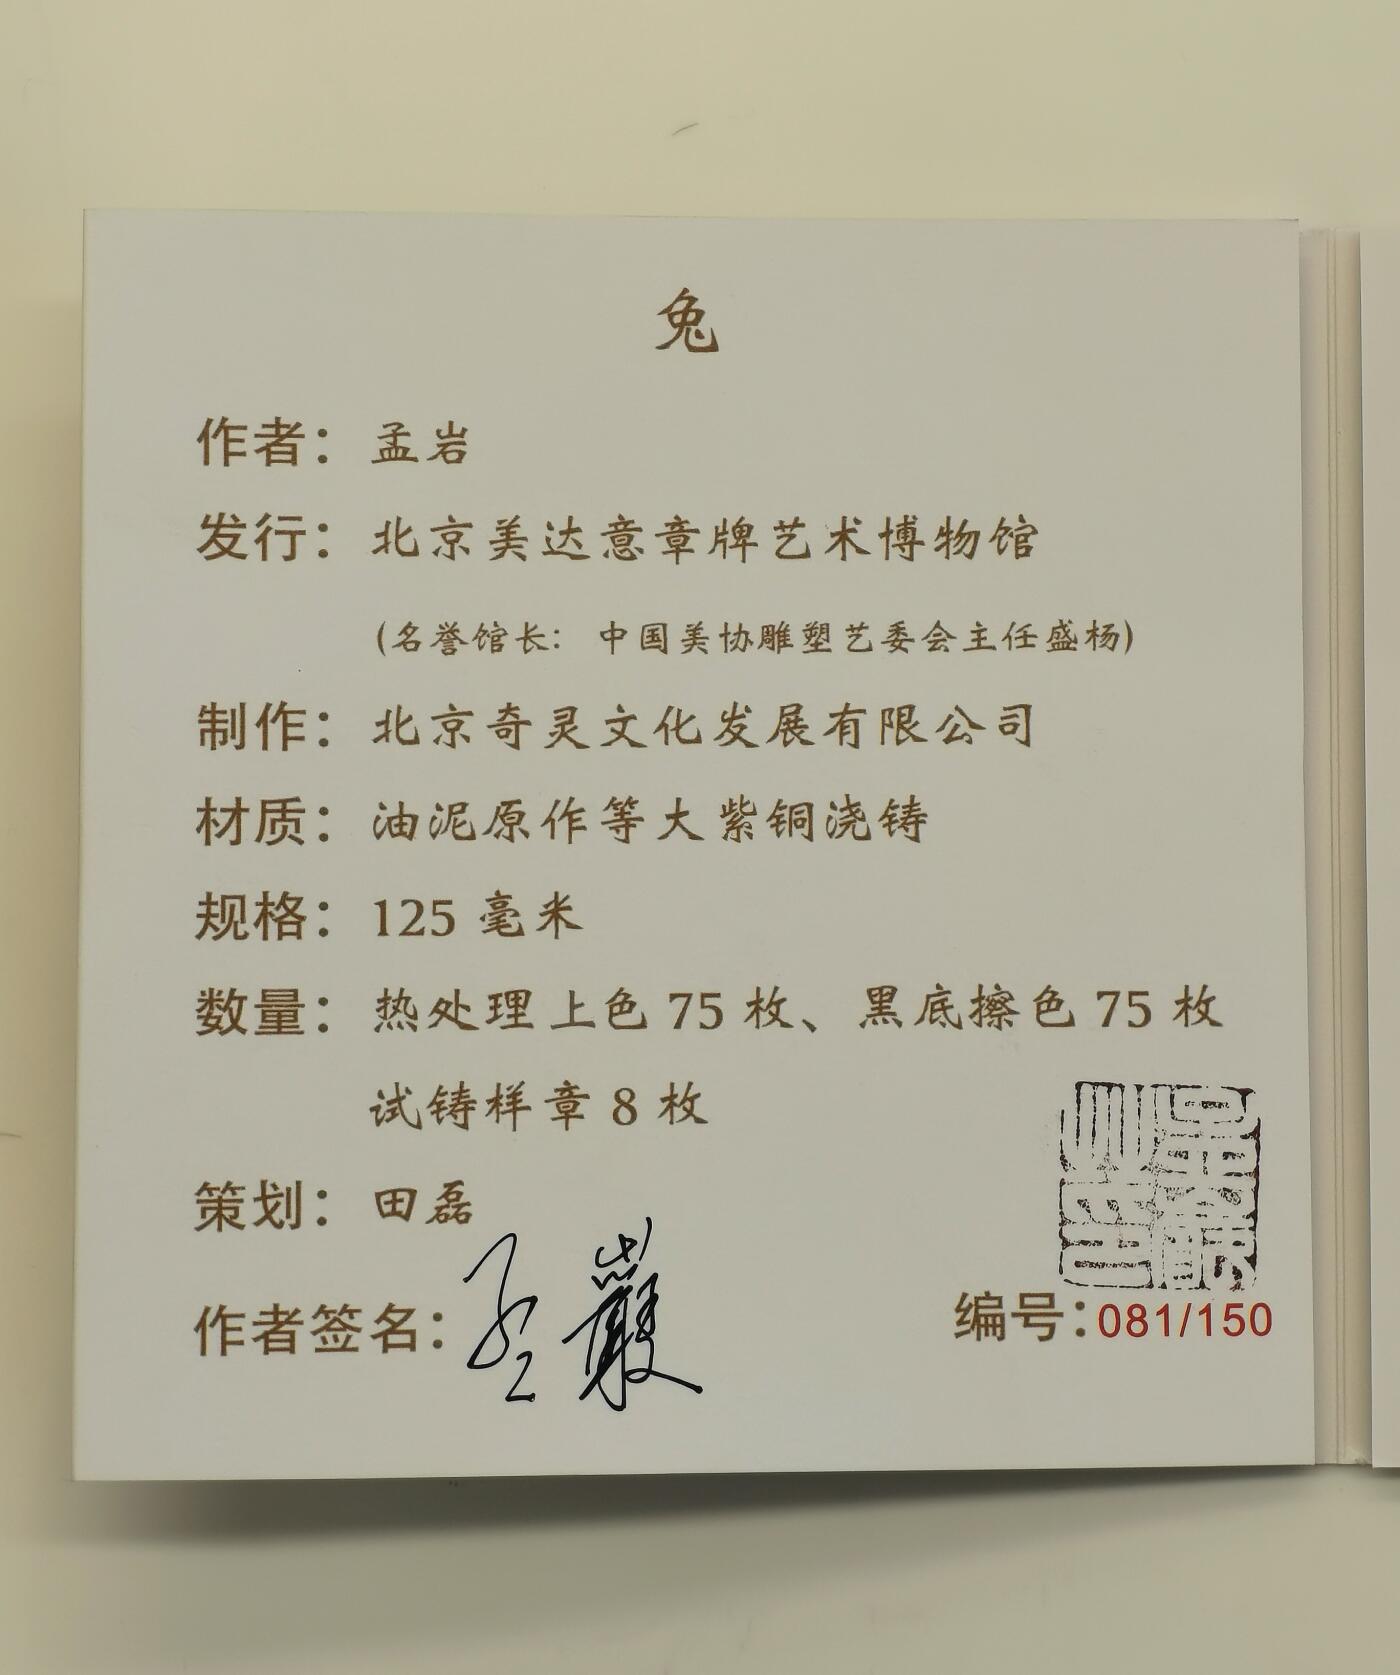 兔
作者：孟岩
发行：北京美达意章牌艺术博物馆
(名誉馆长：中国美协雕塑艺委会主任盛杨)
制作：北京奇灵文化发展有限公司
材质：油泥原作等大紫铜浇铸
规格：125 毫米
数量：热处理上色 75 枚、黑底擦色 75 枚
试铸样章 8 枚
策划：田磊
作者签名：孟巖
编号：081/150